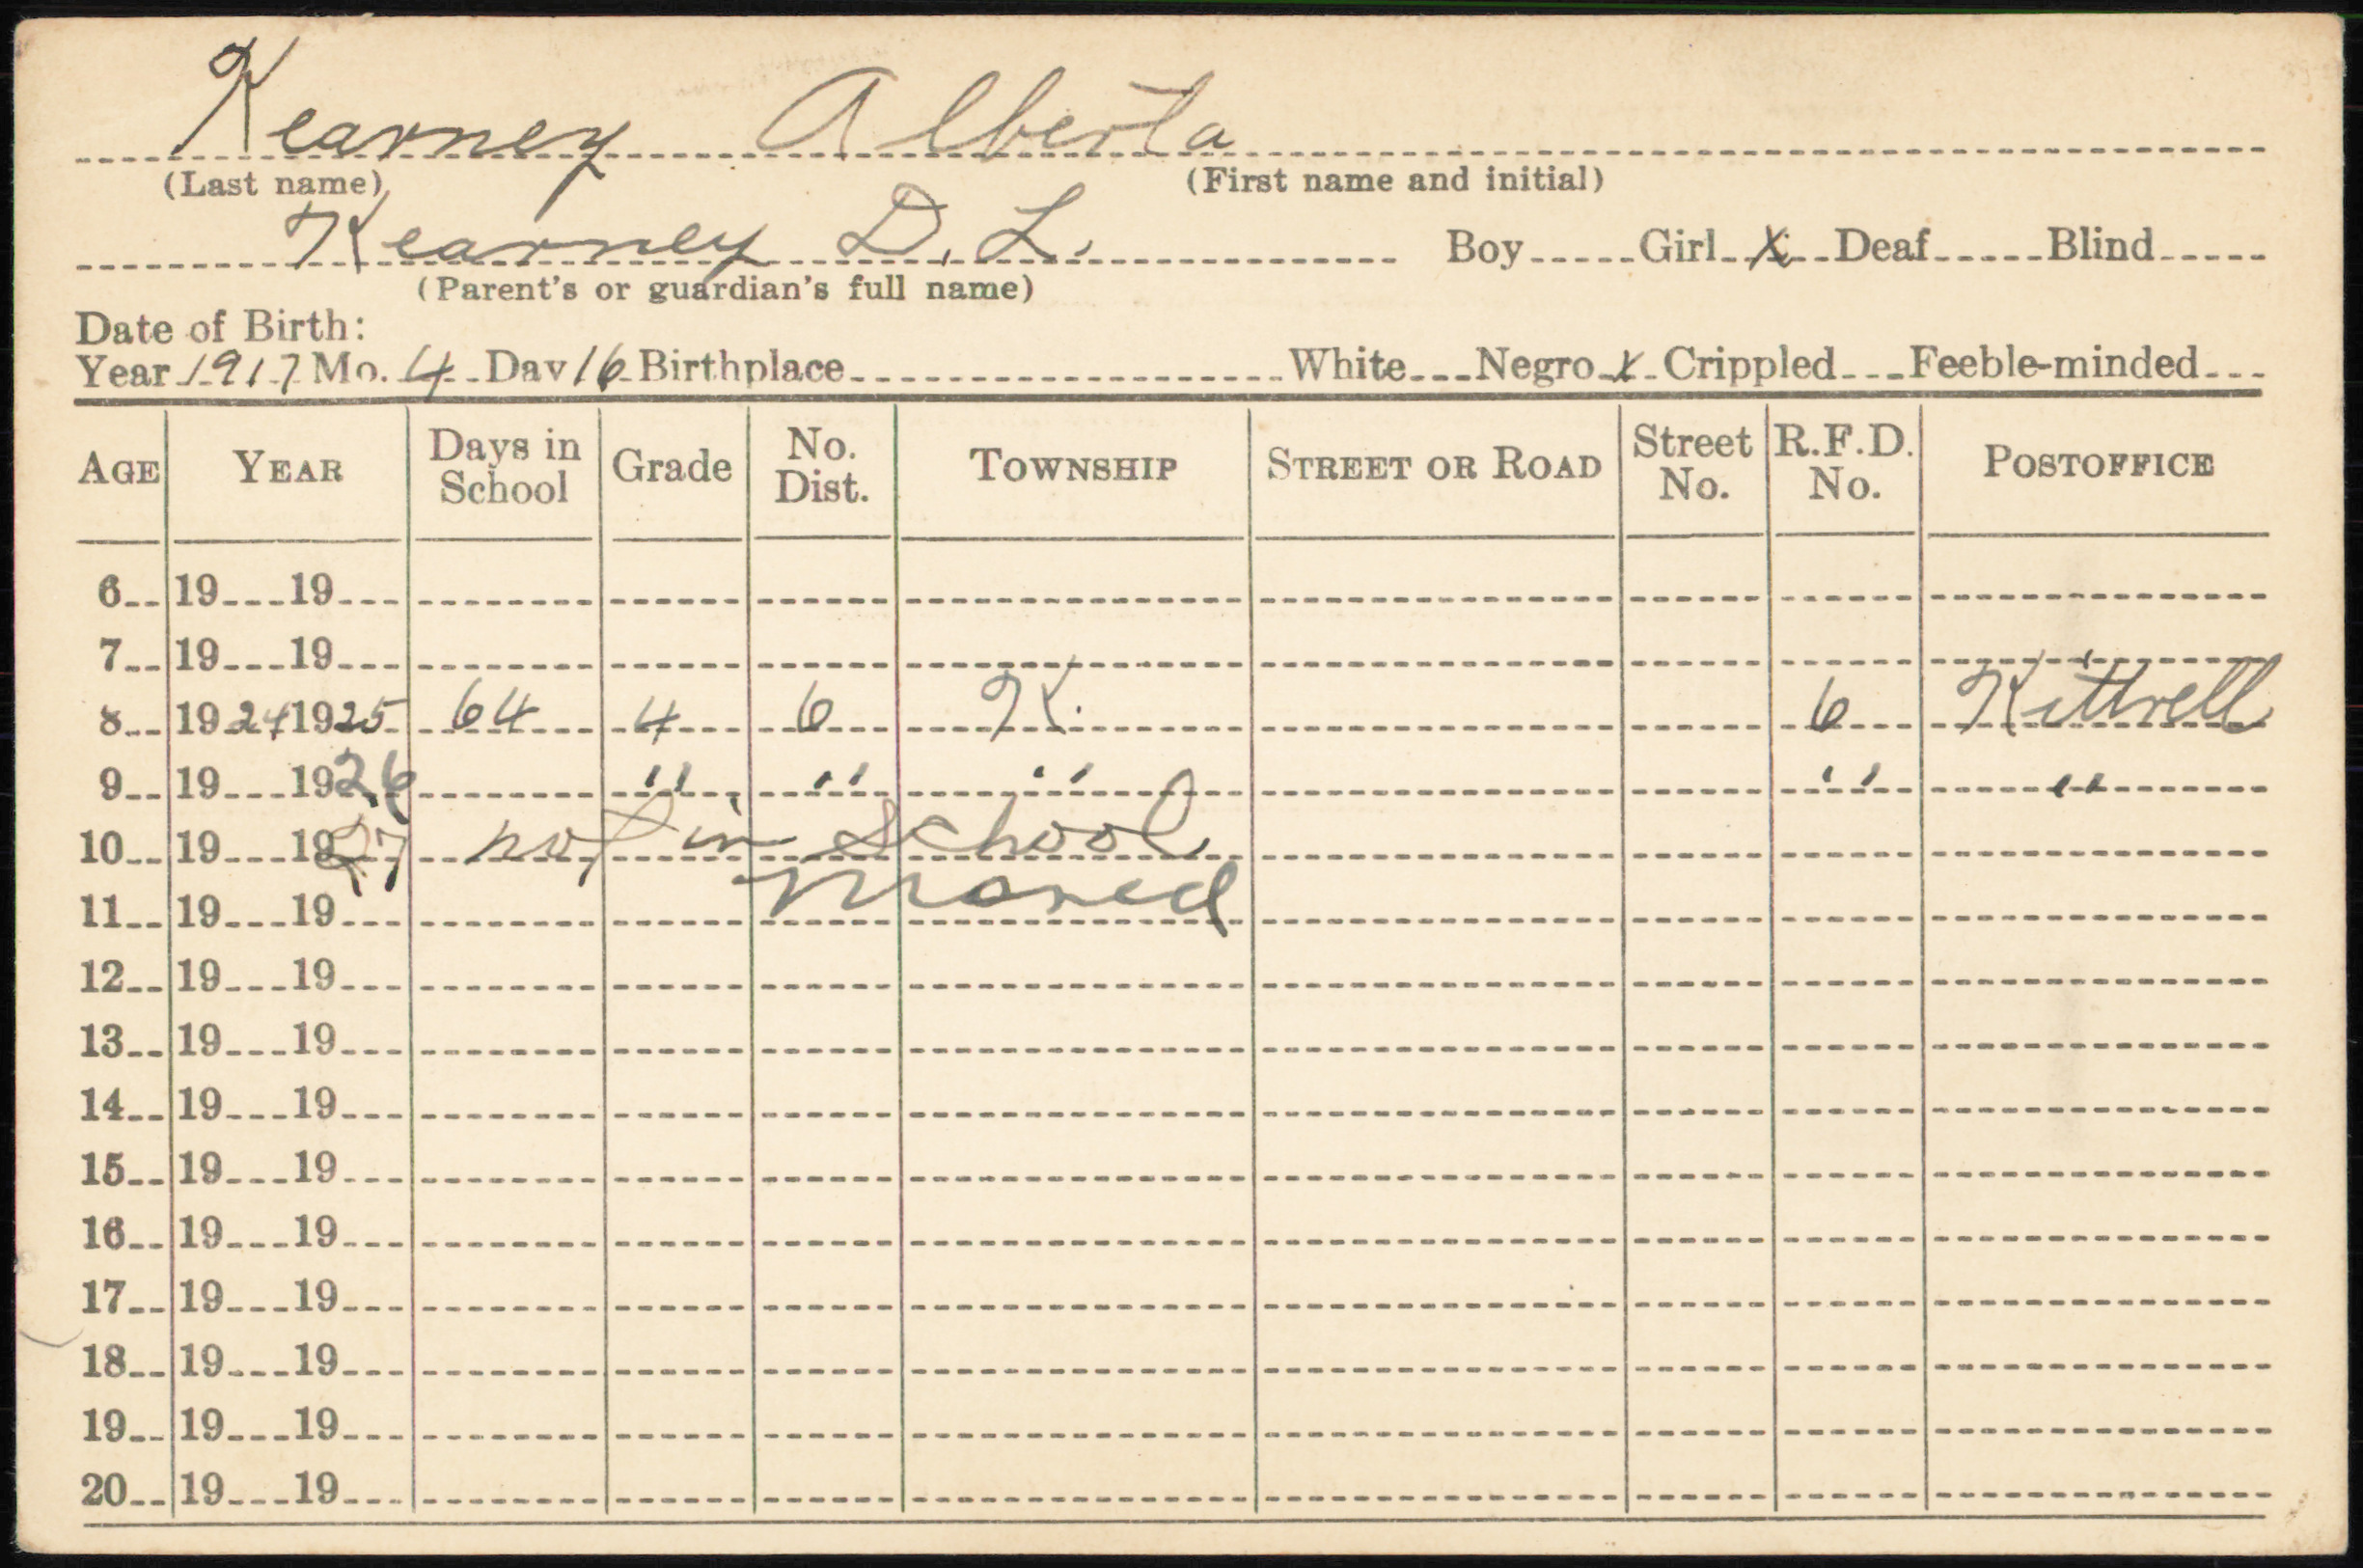 Kearney Alberta
(Last name) (First name and initial)
Kearney D. L. Boy Girl X Deaf Blind
(Parent's or guardian's full name)
Date of Birth:
Year 1917 Mo. 4 Day 16 Birthplace White Negro x Crippled Feeble-minded
AGE YEAR Days in School Grade No. Dist. TOWNSHIP STREET OR ROAD Street No. R.F.D. No. POSTOFFICE
6 19 19
7 19 19
8 1924 1925 64 4 6 K. 6 Kittrell
9 19 1926 " " " " "
10 19 1927 not in school
11 19 19 moved
12 19 19
13 19 19
14 19 19
15 19 19
16 19 19
17 19 19
18 19 19
19 19 19
20 19 19